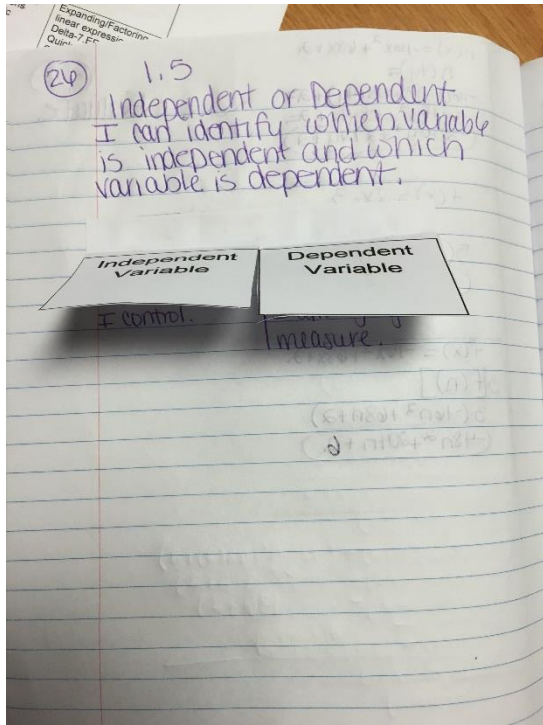 Expanding/Factoring
linear expressi
Delta-7.EE
26
1.5
Independent or Dependent
I can identify which variable
is independent and which
variable is dependent.
Independent
Variable
Dependent
Variable
I control.
measure.